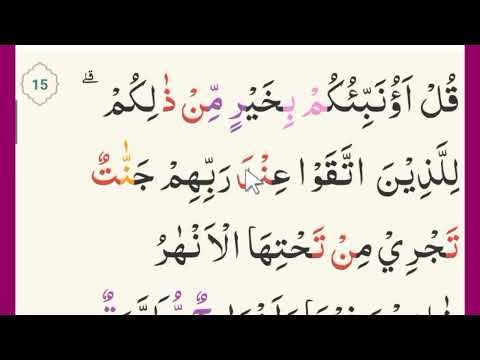 قُلْ اَؤُنَبِّئُكُمْ بِخَيْرٍ مِّنْ ذٰلِكُمْ ۗ 15
لِلَّذِيْنَ اتَّقَوْا عِنْدَ رَبِّهِمْ جَنّٰتٌ
تَجْرِيْ مِنْ تَحْتِهَا الْاَنْهٰرُ